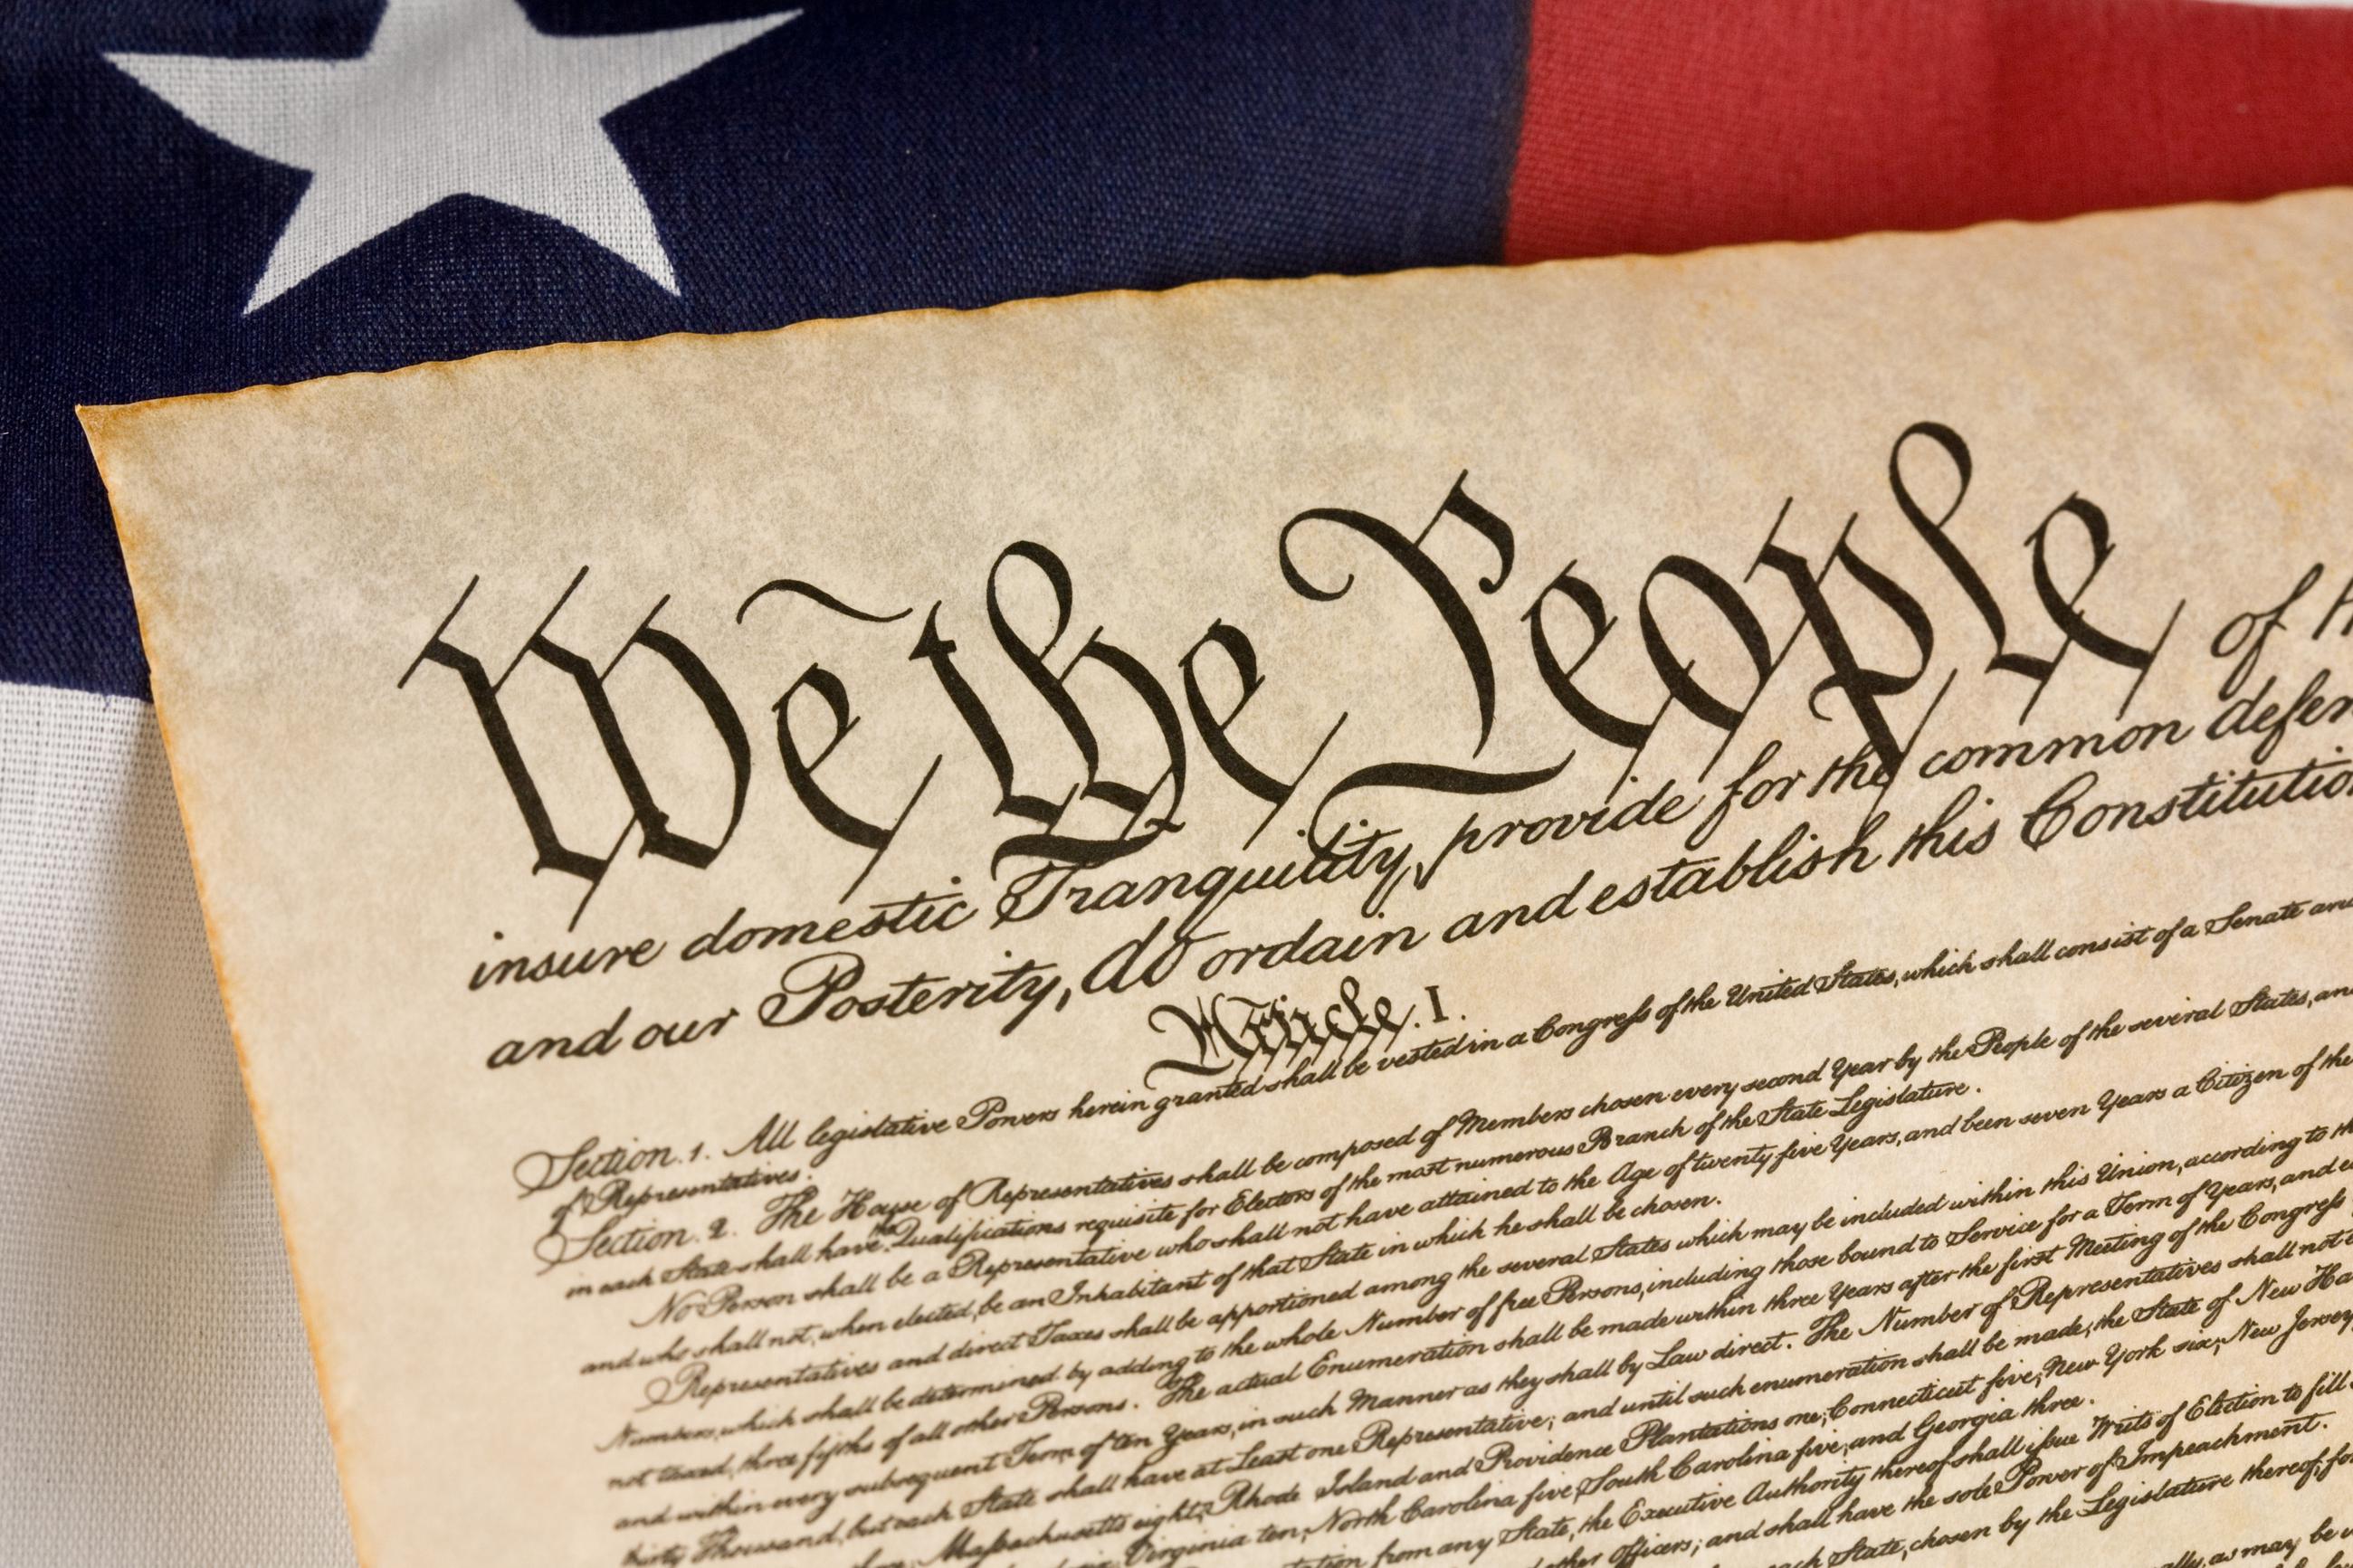 We the People of
insure domestic Tranquility, provide for the common defen
and our Posterity, do ordain and establish this Constitutio
Article. I.
Section. 1. All legislative Powers herein granted shall be vested in a Congress of the United States, which shall consist of a Senate and
of Representatives.
Section. 2. The House of Representatives shall be composed of Members chosen every second Year by the People of the several States, and
in each State shall have the Qualifications requisite for Electors of the most numerous Branch of the State Legislature.
No Person shall be a Representative who shall not have attained to the Age of twenty five Years, and been seven Years a Citizen of the
and who shall not, when elected, be an Inhabitant of that State in which he shall be chosen.
Representatives and direct Taxes shall be apportioned among the several States which may be included within this Union, according to th
Numbers, which shall be determined by adding to the whole Number of free Persons, including those bound to Service for a Term of Years, and e
not taxed, three fifths of all other Persons. The actual Enumeration shall be made within three Years after the first Meeting of the Congress
and within every subsequent Term of ten Years, in such Manner as they shall by Law direct. The Number of Representatives shall not
thirty Thousand, but each State shall have at Least one Representative; and until such enumeration shall be made, the State of New Ha
Massachusetts eight, Rhode Island and Providence Plantations one, Connecticut five, New York six, New Jersey
Virginia ten, North Carolina five, South Carolina five, and Georgia three.
from any State, the Executive Authority thereof shall issue Writs of Election to fill
other Officers; and shall have the sole Power of Impeachment.
State, chosen by the Legislature thereof, fo
as may be